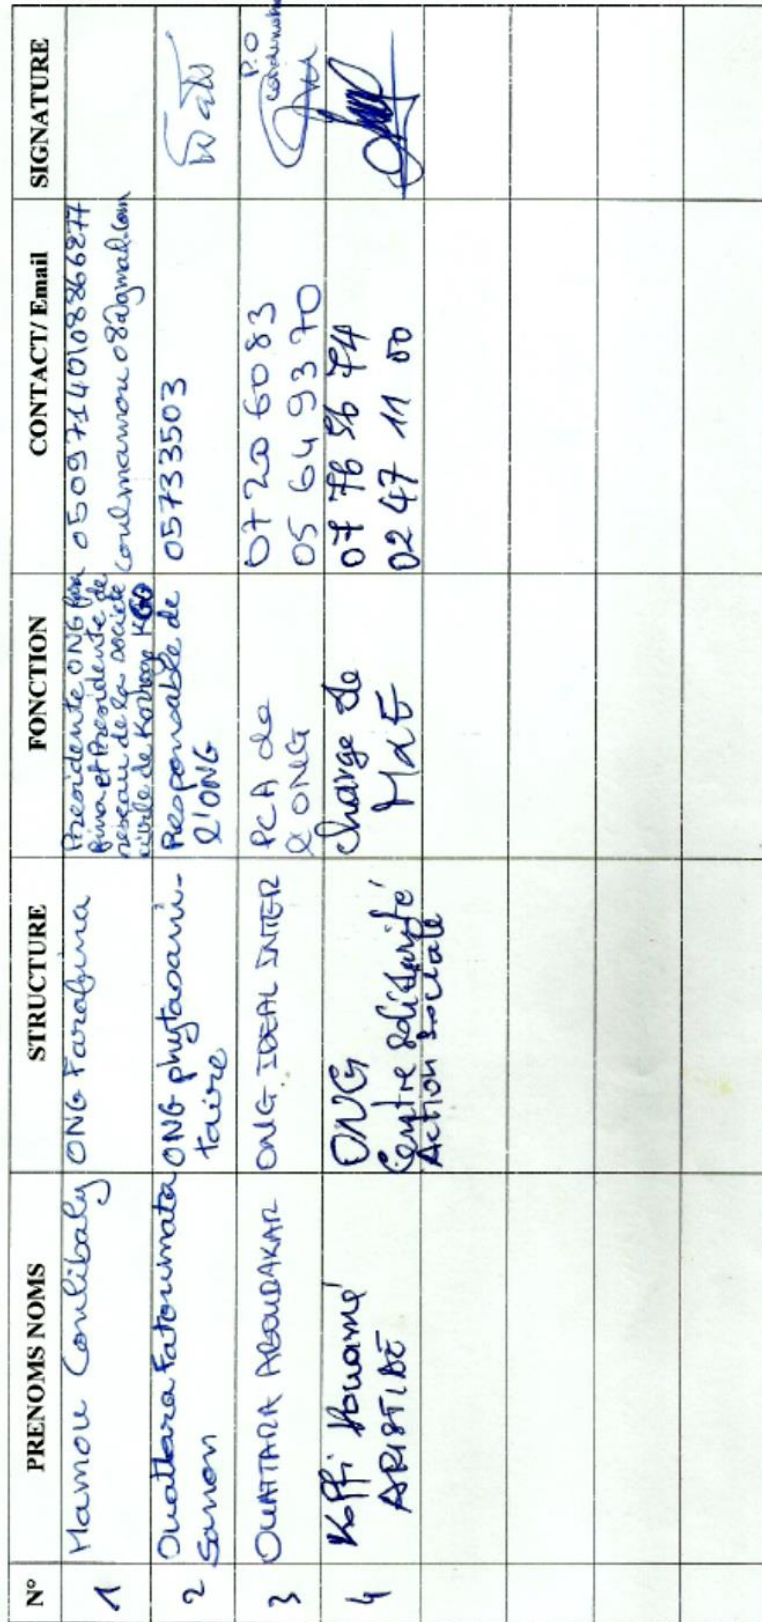 N° PRENOMS NOMS STRUCTURE FONCTION CONTACT/ Email SIGNATURE
1 Mamou Coulibaly ONG Farafina Presidente ONG Fara
fina et Presidente de
reseau de la societe
civile de Korhogo KGO 0509714010 8866277
coulmamou08@gmail.com
2 Ouattara Fatoumata
Sanon ONG phytosani-
taire Responsable de
l'ONG 05733503
3 OUATTARA ABOUBAKAR ONG IDEAL INTER PCA de
l'ONG 07 20 60 83
05 64 93 70 P.O
4 Koffi Kouamé
ARISTIDE ONG
Centre Solidarité
Action Sociale Charge de
M&E 07 76 56 74
02 47 11 00